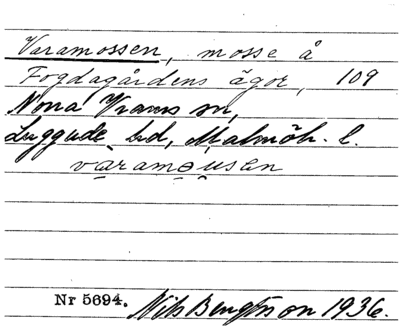 Varamossen, mosse å
Fogdagårdens ägor, 109
Norra Vrams sn,
Luggude hd, Malmöh. l.
varamɵusen
Nr 5694. Nils Bengtsson 1936.